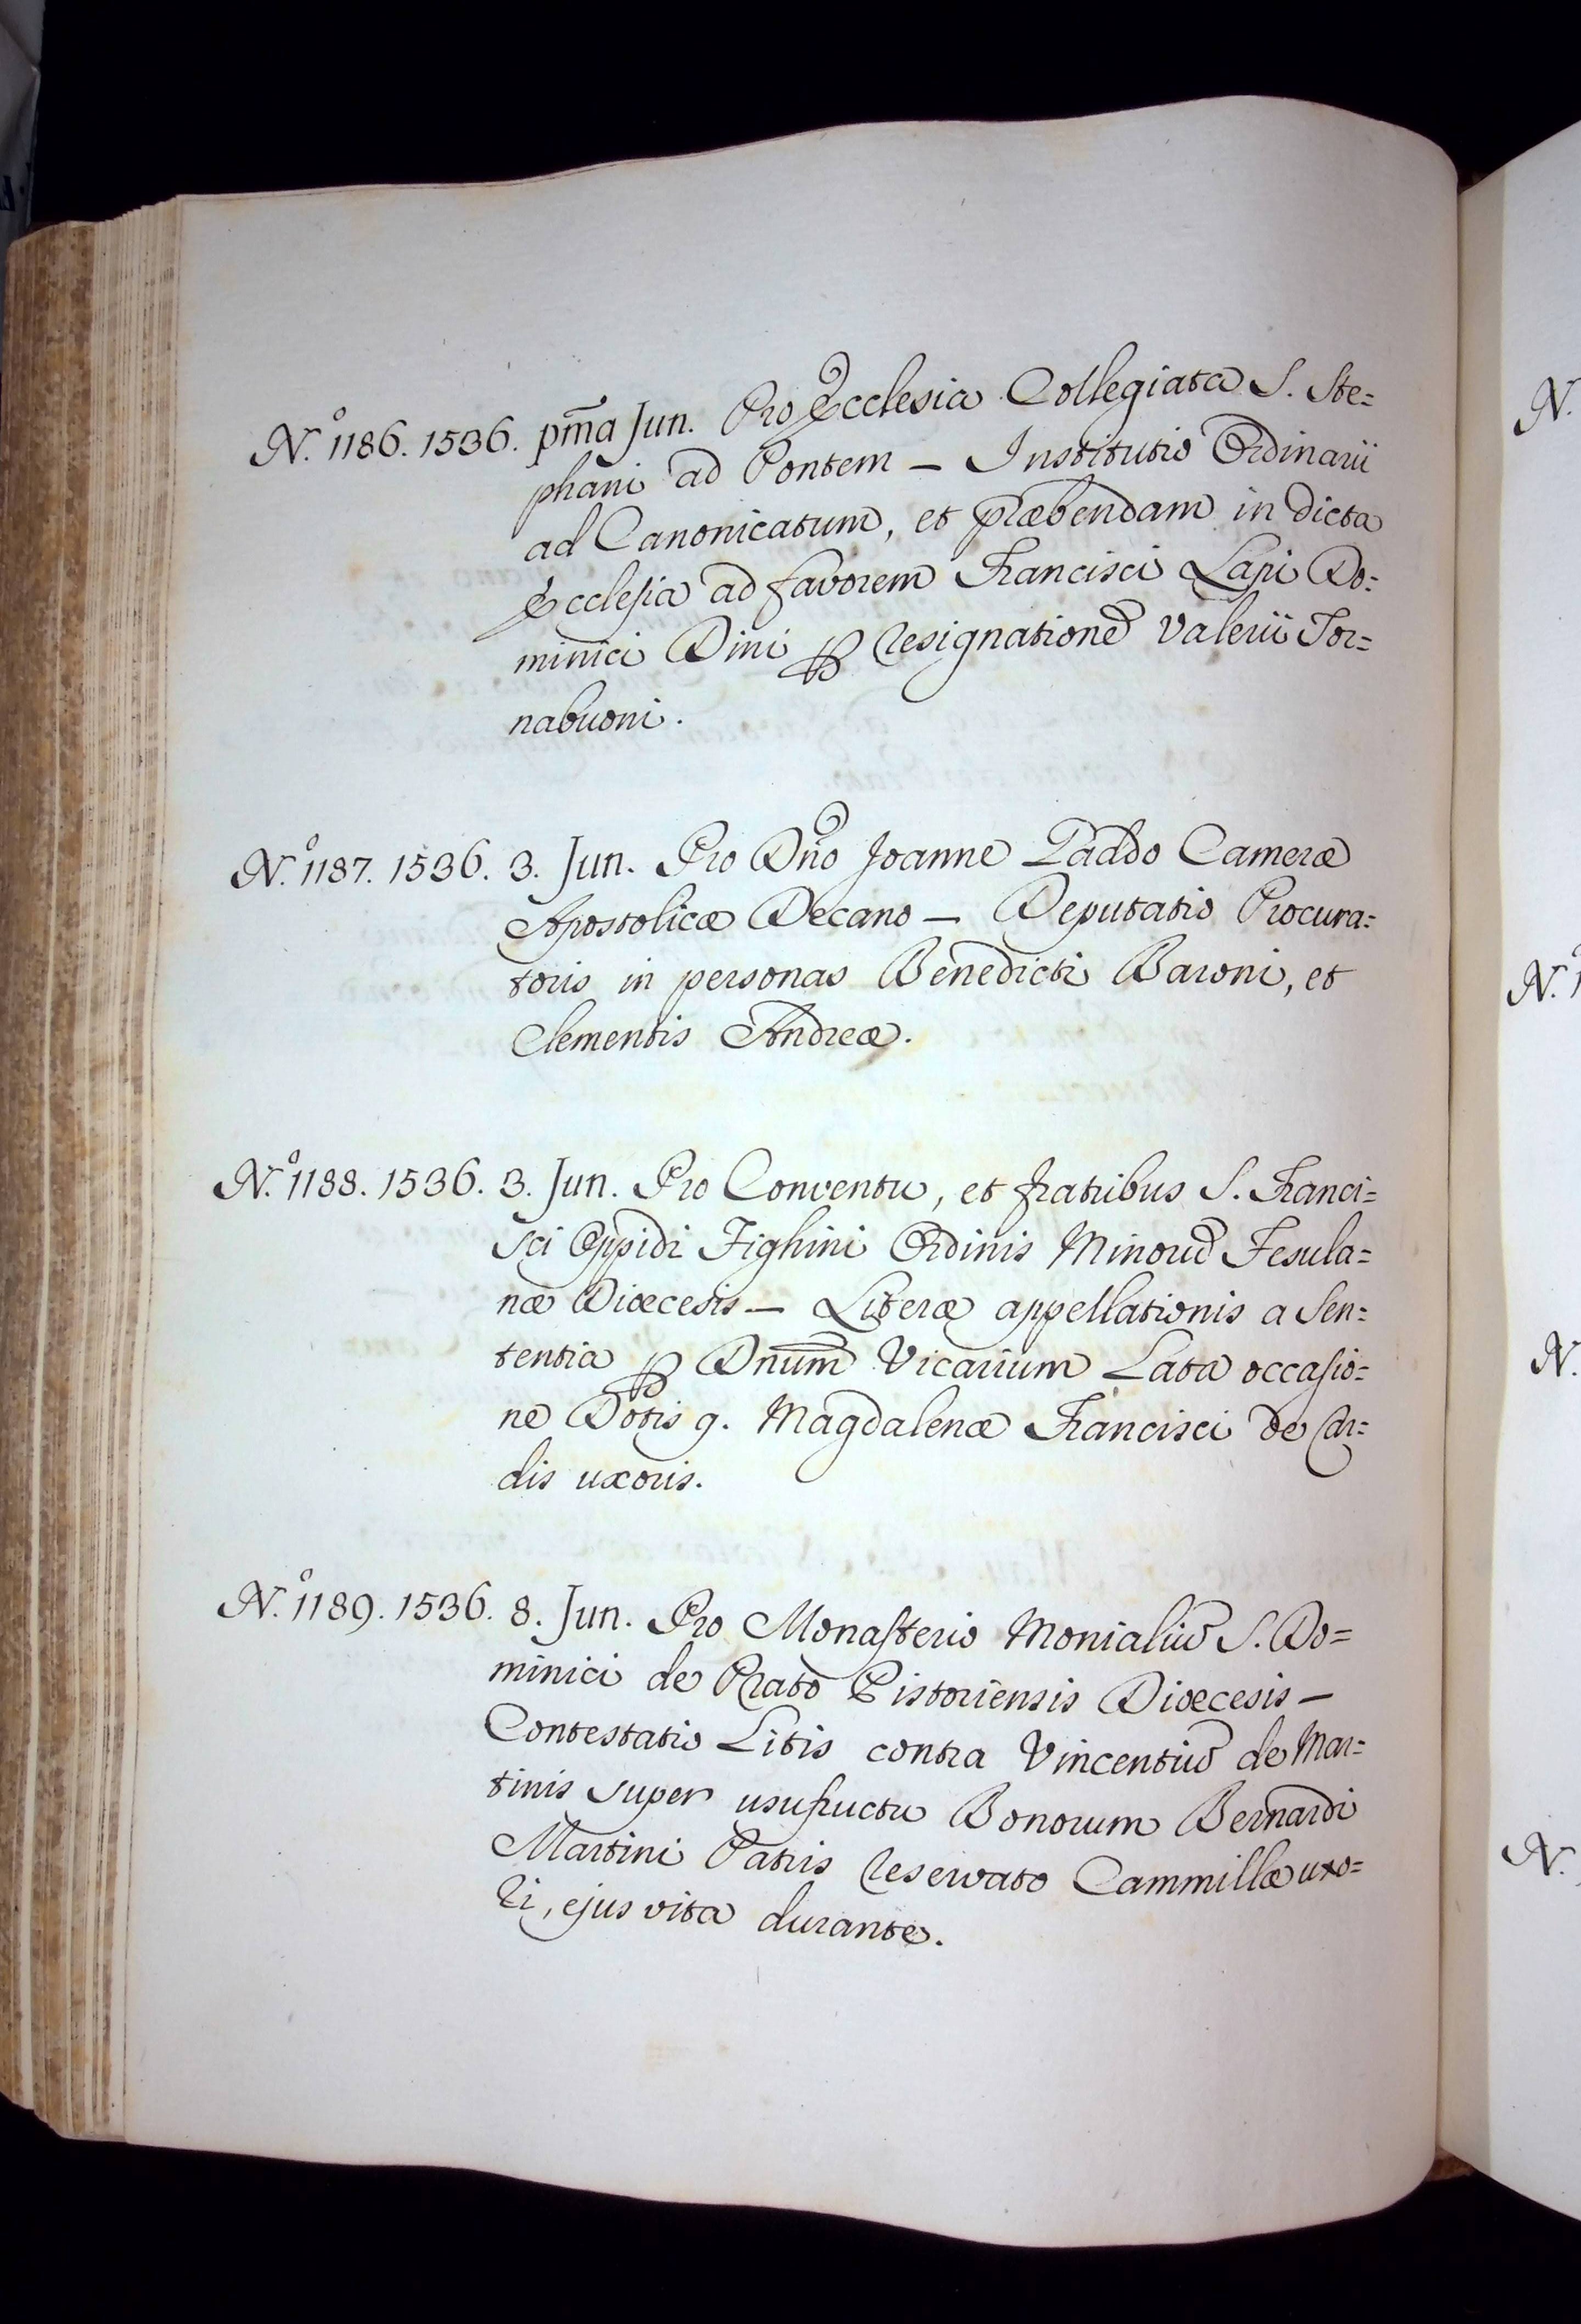 N.º 1186. 1536. pm̃a Jun. Pro Ecclesia Collegiata S. Ste=
phani ad Pontem — Institutio Ordinarii
ad Canonicatum, et præbendam in dicta
Ecclesia ad favorem Francisci Lapi Do=
minici Dini ꝑ resignationẽ Valerii Tor=
nabuoni.
N.º 1187. 1536. 3. Jun. Pro Dño Joanne Taddo Cameræ
Apostolicæ Decano — Deputatio Procura=
toris in personas Benedicti Baroni, et
Clementis Andreæ.
N.º 1188. 1536. 3. Jun. Pro Conventu, et fratribus S. Franci=
sci Oppidi Fighini Ordinis Minorũ Fesula=
næ Diœcesis — Literæ appellationis a Sen=
tentia ꝑ Dnũm Vicarium Lata occasio=
ne Dotis q. Magdalenæ Francisci de Car=
dis uxoris.
N.º 1189. 1536. 8. Jun. Pro Monasterio Monialiũ S. Do=
minici de Prato Pistoriensis Diœcesis —
Contestatio Litis contra Vincentiũ de Mar=
tinis super usufructu Bonorum Bernardi
Martini Patris reservato Cammillæ uxo=
ri, ejus vita durante.
N.
N.º 1
N.
N.